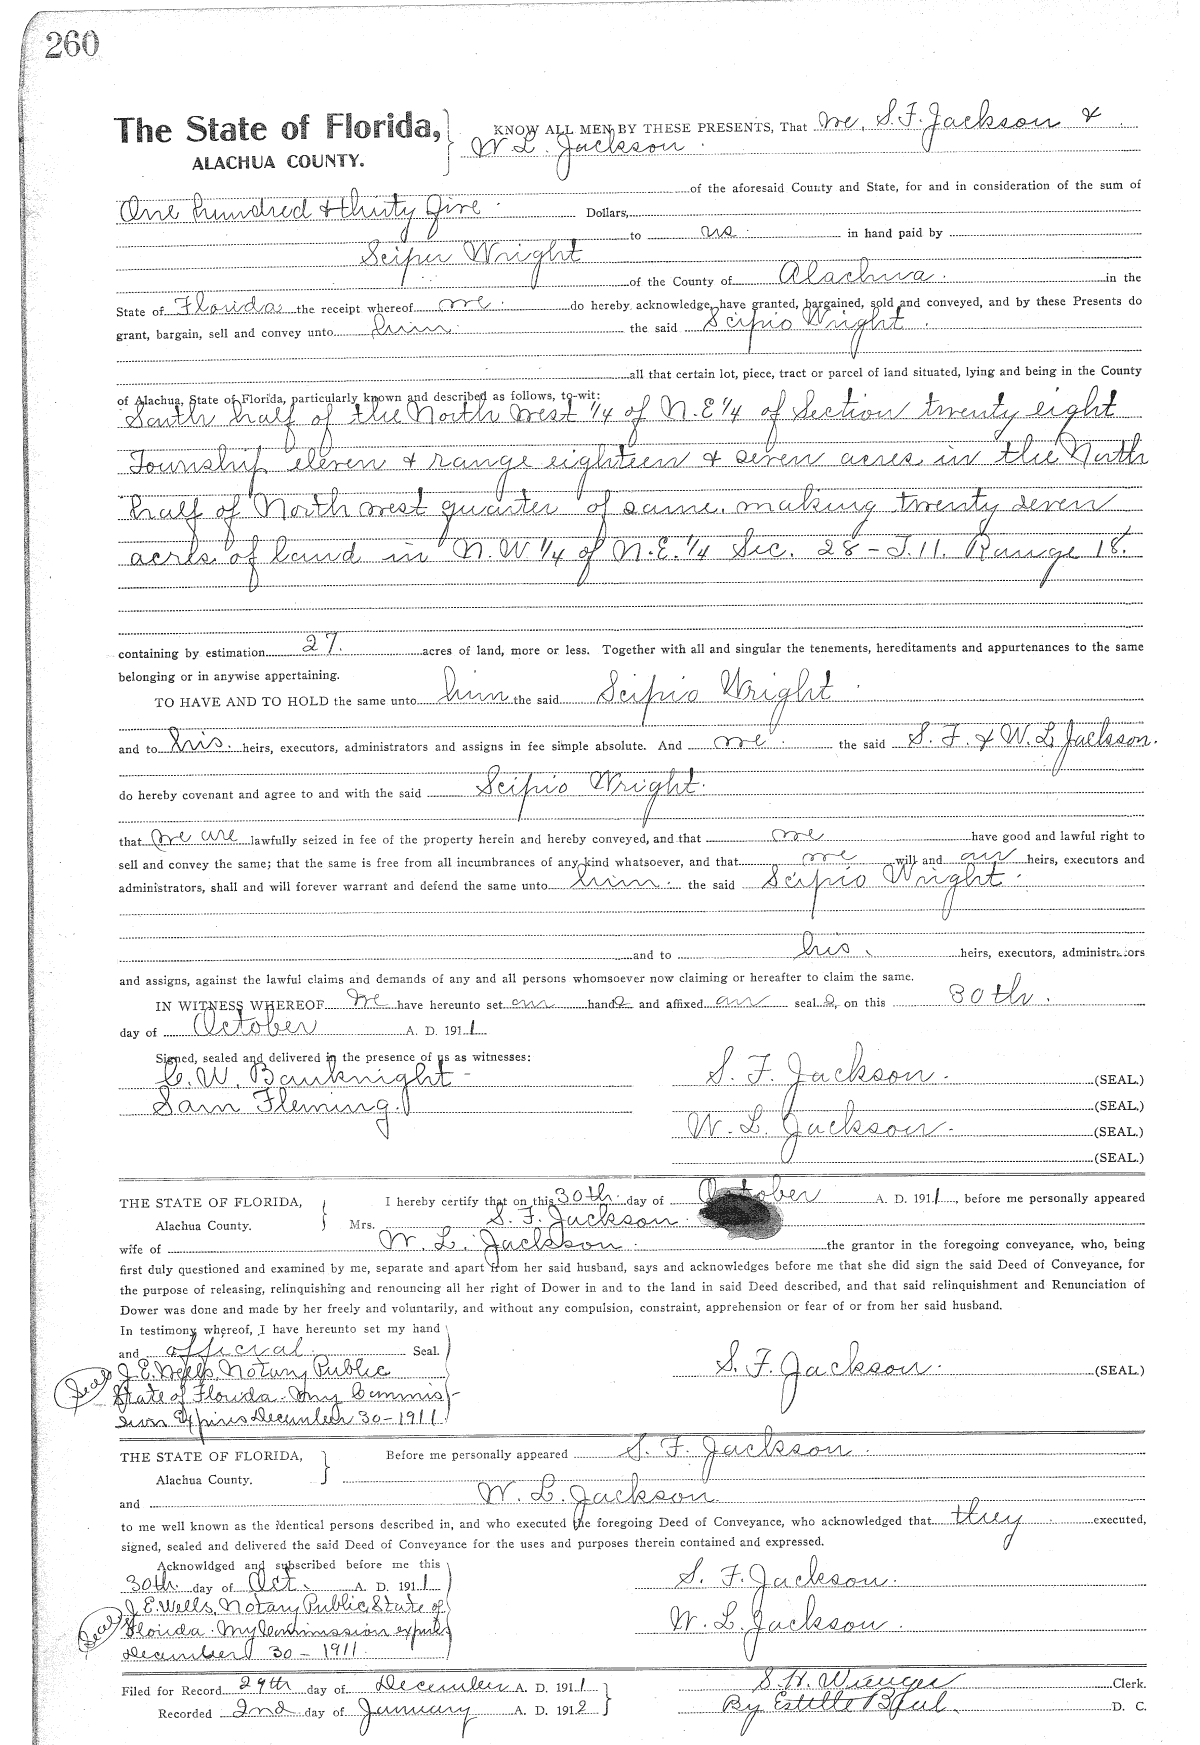 260
The State of Florida,
ALACHUA COUNTY.
KNOW ALL MEN BY THESE PRESENTS, That We, S. F. Jackson &
W L. Jackson
of the aforesaid County and State, for and in consideration of the sum of
One hundred & thirty five Dollars,
to us in hand paid by
Wright
of the County of Alachua in the
State of Florida the receipt whereof we do hereby acknowledge, have granted, bargained, sold and conveyed, and by these Presents do
grant, bargain, sell and convey unto him the said Scipio Wright
all that certain lot, piece, tract or parcel of land situated, lying and being in the County
of Alachua, State of Florida, particularly known and described as follows, to-wit:
South half of the North west 1/4 of N. E 1/4 of Section twenty eight
Township eleven & range eighteen & seven acres in the North
half of North west quarter of same. making twenty seven
acres of land in N. W 1/4 of N. E. 1/4 Sec. 28 - T. 11. Range 18.
containing by estimation 27. acres of land, more or less. Together with all and singular the tenements, hereditaments and appurtenances to the same
belonging or in anywise appertaining.
TO HAVE AND TO HOLD the same unto him the said Scipio Wright
and to his heirs, executors, administrators and assigns in fee simple absolute. And we the said S. F. & W. L Jackson.
do hereby covenant and agree to and with the said Scipio Wright.
that we are lawfully seized in fee of the property herein and hereby conveyed, and that we have good and lawful right to
sell and convey the same; that the same is free from all incumbrances of any kind whatsoever, and that we will and our heirs, executors and
administrators, shall and will forever warrant and defend the same unto him the said Scipio Wright.
and to his heirs, executors, administrators
and assigns, against the lawful claims and demands of any and all persons whomsoever now claiming or hereafter to claim the same.
IN WITNESS WHEREOF We have hereunto set our hands and affixed our seals, on this 30th.
day of October A. D. 1911
Signed, sealed and delivered in the presence of us as witnesses:
C. W. Bauknight
Sam Fleming.
S. F. Jackson. (SEAL.)
(SEAL.)
W. L. Jackson. (SEAL.)
(SEAL.)
THE STATE OF FLORIDA,
Alachua County.
I hereby certify that on this 30th. day of October A. D. 1911, before me personally appeared
Mrs. S. F. Jackson
wife of W. L. Jackson the grantor in the foregoing conveyance, who, being
first duly questioned and examined by me, separate and apart from her said husband, says and acknowledges before me that she did sign the said Deed of Conveyance, for
the purpose of releasing, relinquishing and renouncing all her right of Dower in and to the land in said Deed described, and that said relinquishment and Renunciation of
Dower was done and made by her freely and voluntarily, and without any compulsion, constraint, apprehension or fear of or from her said husband.
In testimony whereof, I have hereunto set my hand
and official Seal.
Seal J. E. Wells, Notary Public
State of Florida. My Commis-
sion Expires December 30-1911.
S. F. Jackson. (SEAL)
THE STATE OF FLORIDA,
Alachua County.
Before me personally appeared S. F. Jackson
and W. L. Jackson
to me well known as the identical persons described in, and who executed the foregoing Deed of Conveyance, who acknowledged that they executed,
signed, sealed and delivered the said Deed of Conveyance for the uses and purposes therein contained and expressed.
Acknowldged and subscribed before me this
30th. day of Oct. A. D. 1911
Seal J. E. Wells, Notary Public State of
Florida. My Commission expires
December 30 - 1911.
S. F. Jackson.
W. L. Jackson.
Filed for Record 29th day of December A. D. 1911
Recorded 2nd day of January A. D. 1912
S. H. Wienges Clerk.
By Estelle D. C.